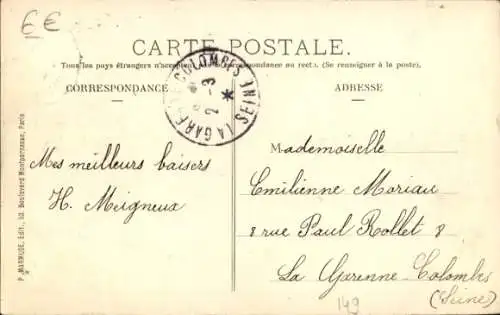 €€
CARTE POSTALE.
Tous les pays étrangers n'acceptent pas la correspondance au recto. (Se renseigner à la poste).
CORRESPONDANCE
ADRESSE
LA GARENNE COLOMBES SEINE
2 - 3
Mes meilleurs baisers
H. Meigneux
Mademoiselle
Emilienne Moriau
8 rue Paul Rollet 8
La Garenne-Colombes
(Seine)
149
P. MARMUSE, Édit., Boulevard Montparnasse, Paris